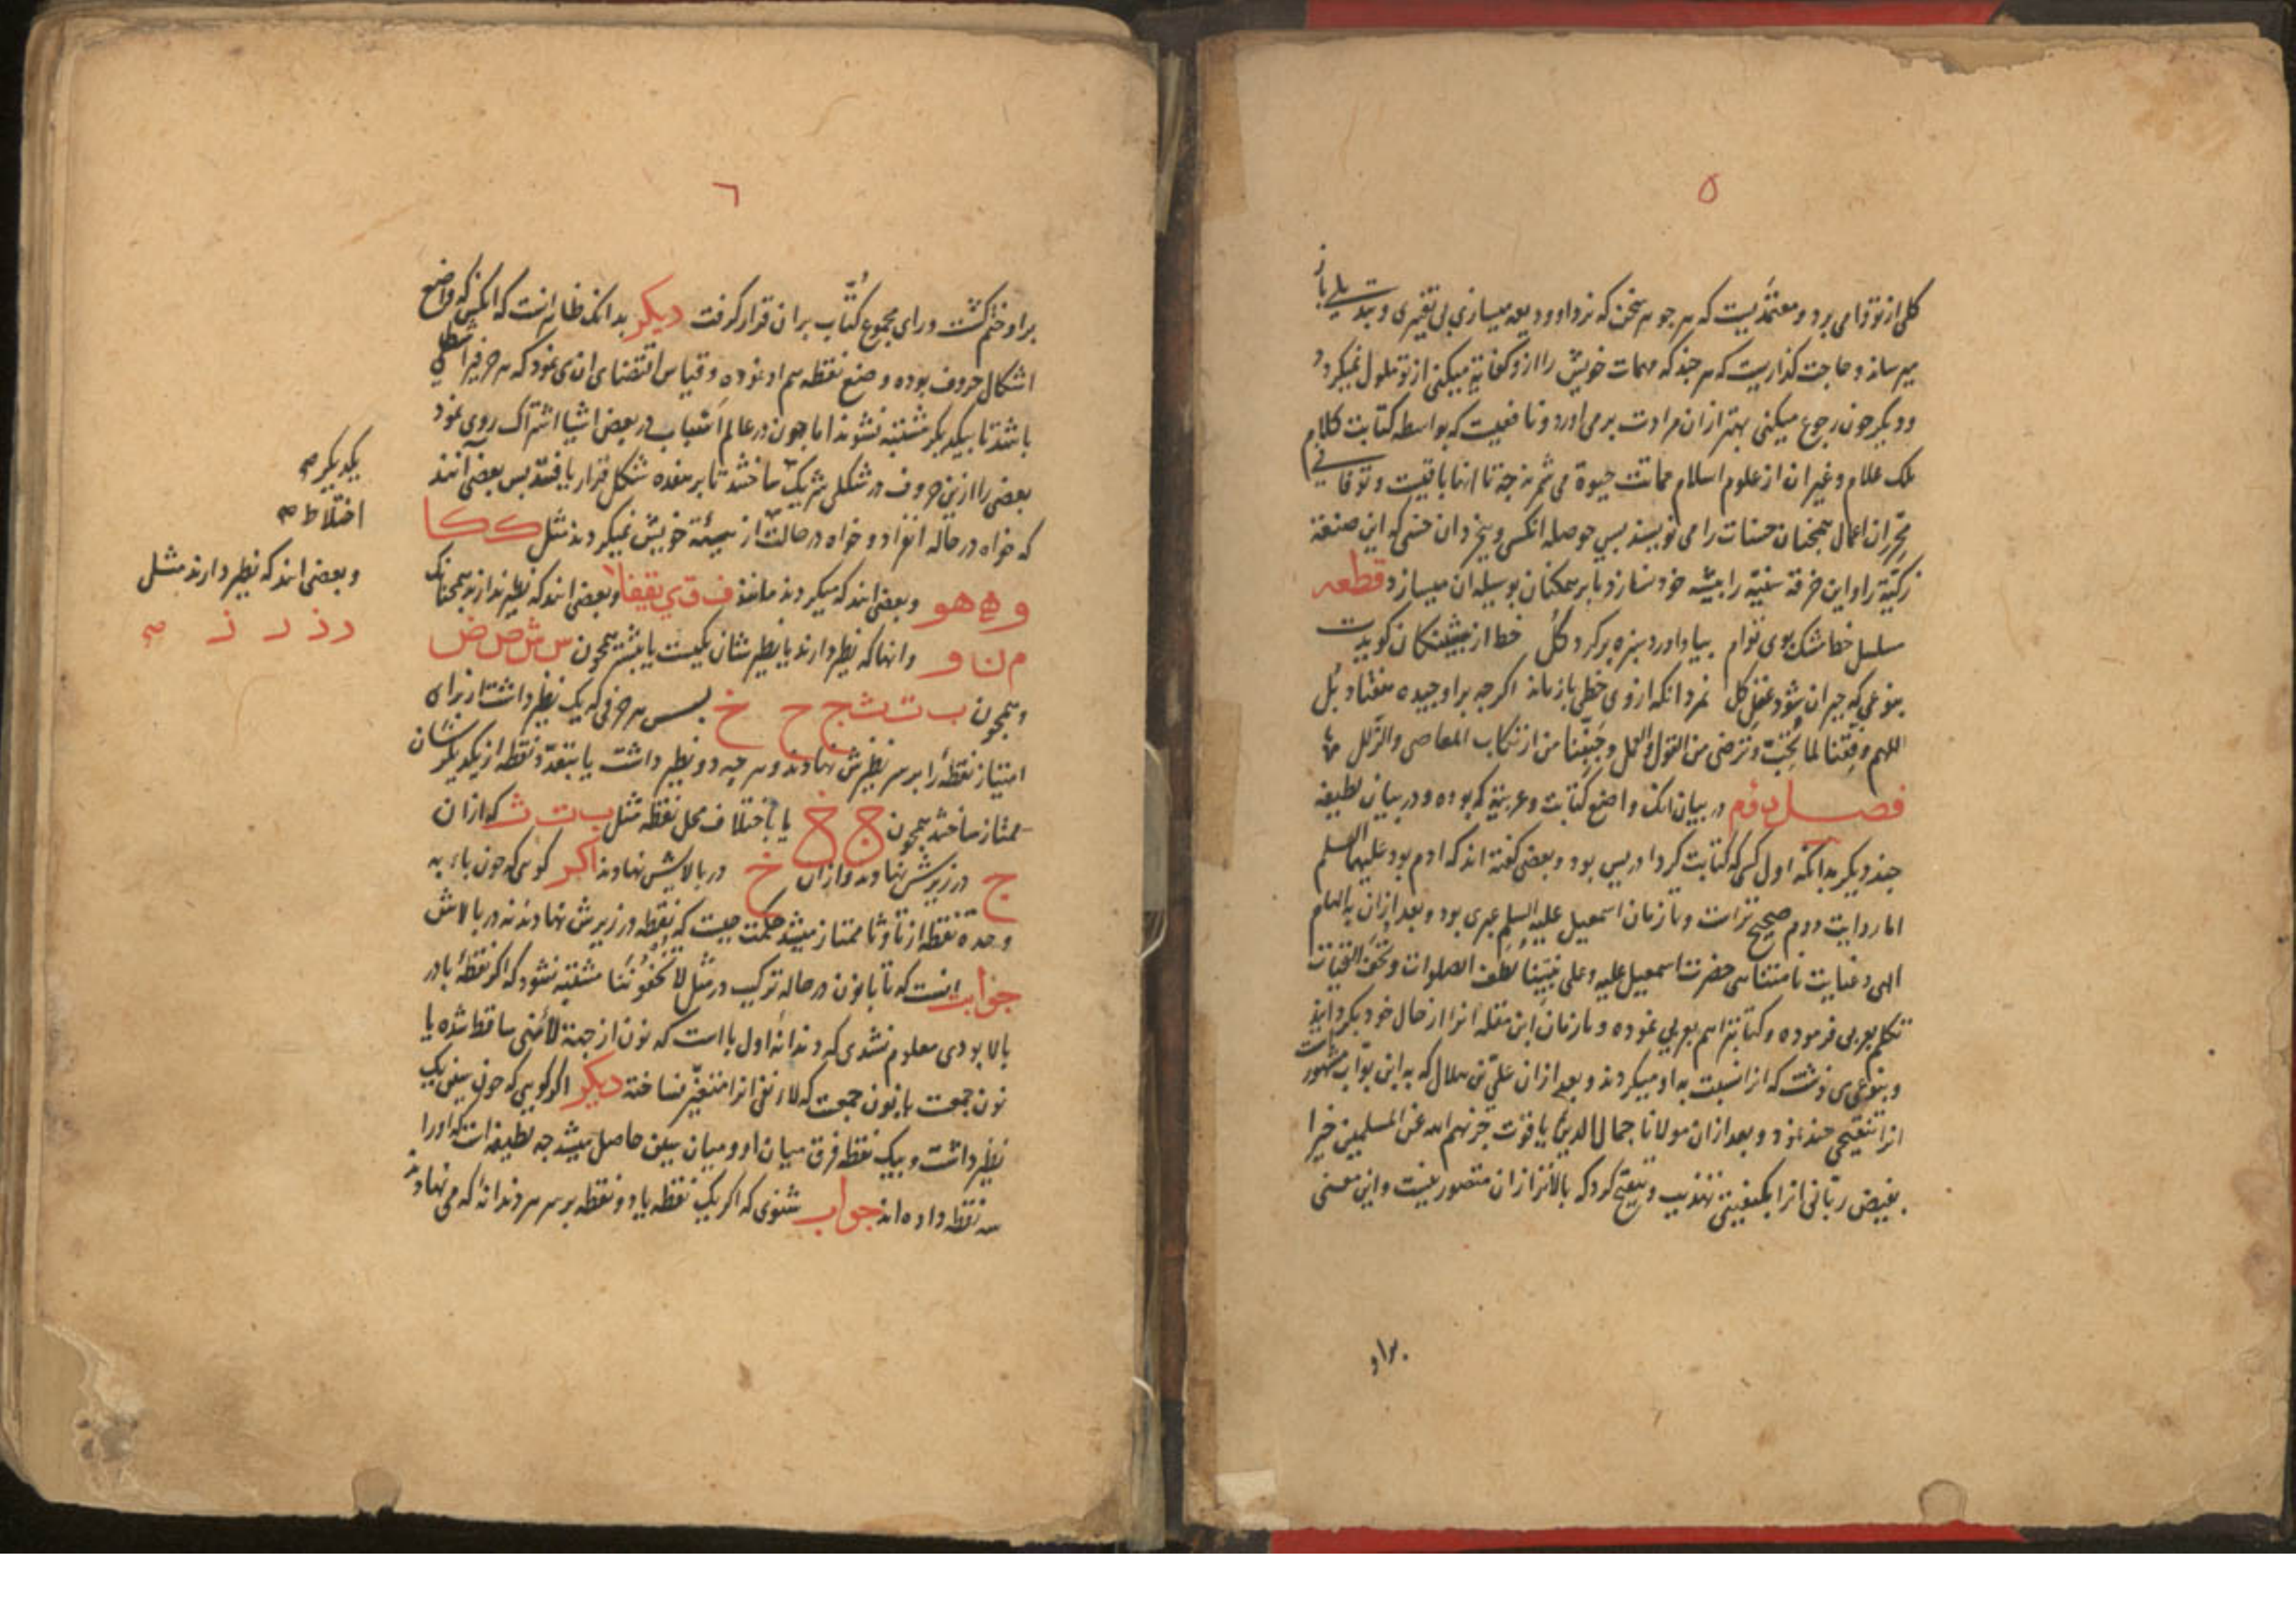 ۵
کلی از تو وامی برد و معتمدیست که هر جوهر سخن که نزد او ودیعه میسازی بی تغیری و تبدیلی باز
میرساند و حاجت گذاریست که هر چند که مهمات خویش را ازو کفایة میکنی از تو ملول نمیگردد
و دیگر چون رجوع میکنی بهتر از آن مرادت برمی آورد و نافعیست که بواسطه کتابت کلام
ملک علام و غیر ان از علوم اسلام مماتت حیوة می ثمر جه تا انها باقیست و توقافی
محرران اعمال همچنان حسنات را می نویسند بس حوصله انکس و بخرد ان حسن که این صنعة
زکیّة را و این حرفة سنیّة را پیشه خود نسازد یا بر همکنان بوسیله ان میسازد قطعه
سلسل خط مشک بوی توام بیاد اورد سبزه بر کرد کل خط از
بنوعی که حیران شود عقل کل نمرد انکه ازوی خطی باز ماند اکرچه براو
اللهم وفقنا لما تحبّ و ترضی من القول والعمل وجنّبنا من ارتکاب المعاصی والزلل
فصل دوم در بیان انک واضع کتابت و عربیة که بوده و در بیان لطیفه
چند دیگر بدانکه اول کسی که کتابت کرد ادریس بود و بعضی کفته اند که ادم بود علیهما السلم
اما روایت دوم صحیح تر است و تا زمان اسمعیل علیه السلم عبری بود و بعد ازان به الهام
الهی و عنایت نامتناهی حضرت اسمعیل علیه و علی نبیّنا لطف الصلوات و تحف التحیات
تکلم بعربی فرموده و کتابتراهم بعربی نموده و تا زمان ابن مقله انرا از حال خود بکردانید
و بنوعی می نوشت که انرا نسبت به او میکردند و بعد ازان علی بن هلال که به ابن بوّاب مشهور است
انرا تنقیحی چند نمود و بعد ازان مولانا جمال الدین یاقوت جزیهم الله عن المسلمین خیرا
بفیض ربّانی انرا بکیفیتی تهذیب و تنقیح کرد که بالاتر ازان متصور نیست و این معنی
براو
٦
براو ختم کشت و رای مجموع کُتّاب بران قرار کرفت دیگر بدانک ظاهر انست که انکس که واضع
اشکال حروف بوده وضع نقطه هم او نموده و قیاس اقتضای ان می نمود که هر حرفیرا شکلی
باشد تا بیکدیکر مشتبه نشوند اما چون در عالم اسباب در بعض اشیا اشتراک روی نمود
بعضی را ازین حروف در شکلی شریک ساختند تا بر هفده شکل قرار یافتند بس بعضی انند
که خواه در حاله انفراد و خواه در حالت از هیئة خویش نمیکردند مثل ک ک ا
و ه هو وبعضی اند که میکردند مانند ف ق ی یقفلا وبعضی اند که نظیر ندارند همچنانک
م ن و وانها که نظیر دارند یا نظیر شان یکیست یا بیشتر همچون س ش ص ض
و همچون ب ت ث ج ح خ بس هر حرفی که یک نظیر داشت از برای
امتیاز نقطهٔ را بر سر نظیرش نهادند و هر چه دو نظیر داشت یا بتعدّد نقطه از یکدیکرشان
ممتاز ساختند همچون ج خ یا باختلاف محل نقطه مثل ب ت ث که ازان
ج در زیرش نهادند وازان خ در بالایش نهادند اکر کوئی که چون باء به
وحده نقطه از تا و ثا ممتاز میشد حکمت چیست که نقطه در زیرش نهادند نه در بالاش
جواب انست که تا با نون در حاله ترکیب در مثل مشتبه نشود که اکر نقطهٔ با در
بالا بودی معلوم نشدی که دندانهٔ اول با است که نون از جهة ساقط شده یا
نون جمعست یا نون جمعست که لا نفی انرا متغیّر نساخته دیگر اکر کویی که چون سین یک
نظیر داشت و بیک نقطه فرق میان او و میان سین حاصل میشد چه لطیفه است که اورا
سه نقطه داده اند جواب شنوی که اکر یک نقطه یا دو نقطه بر سر هر دندانهٔ که می نهادند
یکدیگر صح
اختلاط صح
و بعضی اند که نظیر دارند مثل
د ذ ر ز صح